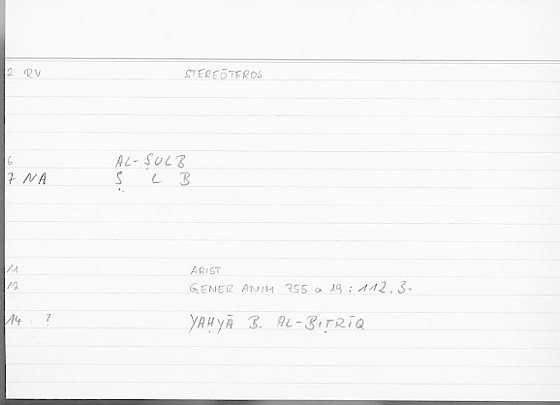 2 RV STEREŌTEROS
6 AL-ṢULB
7 NA Ṣ L B
11 ARIST
12 GENER ANIM 755 a 19 : 112.3.
14 ? YAḤYĀ B. AL-BIṬRĪQ